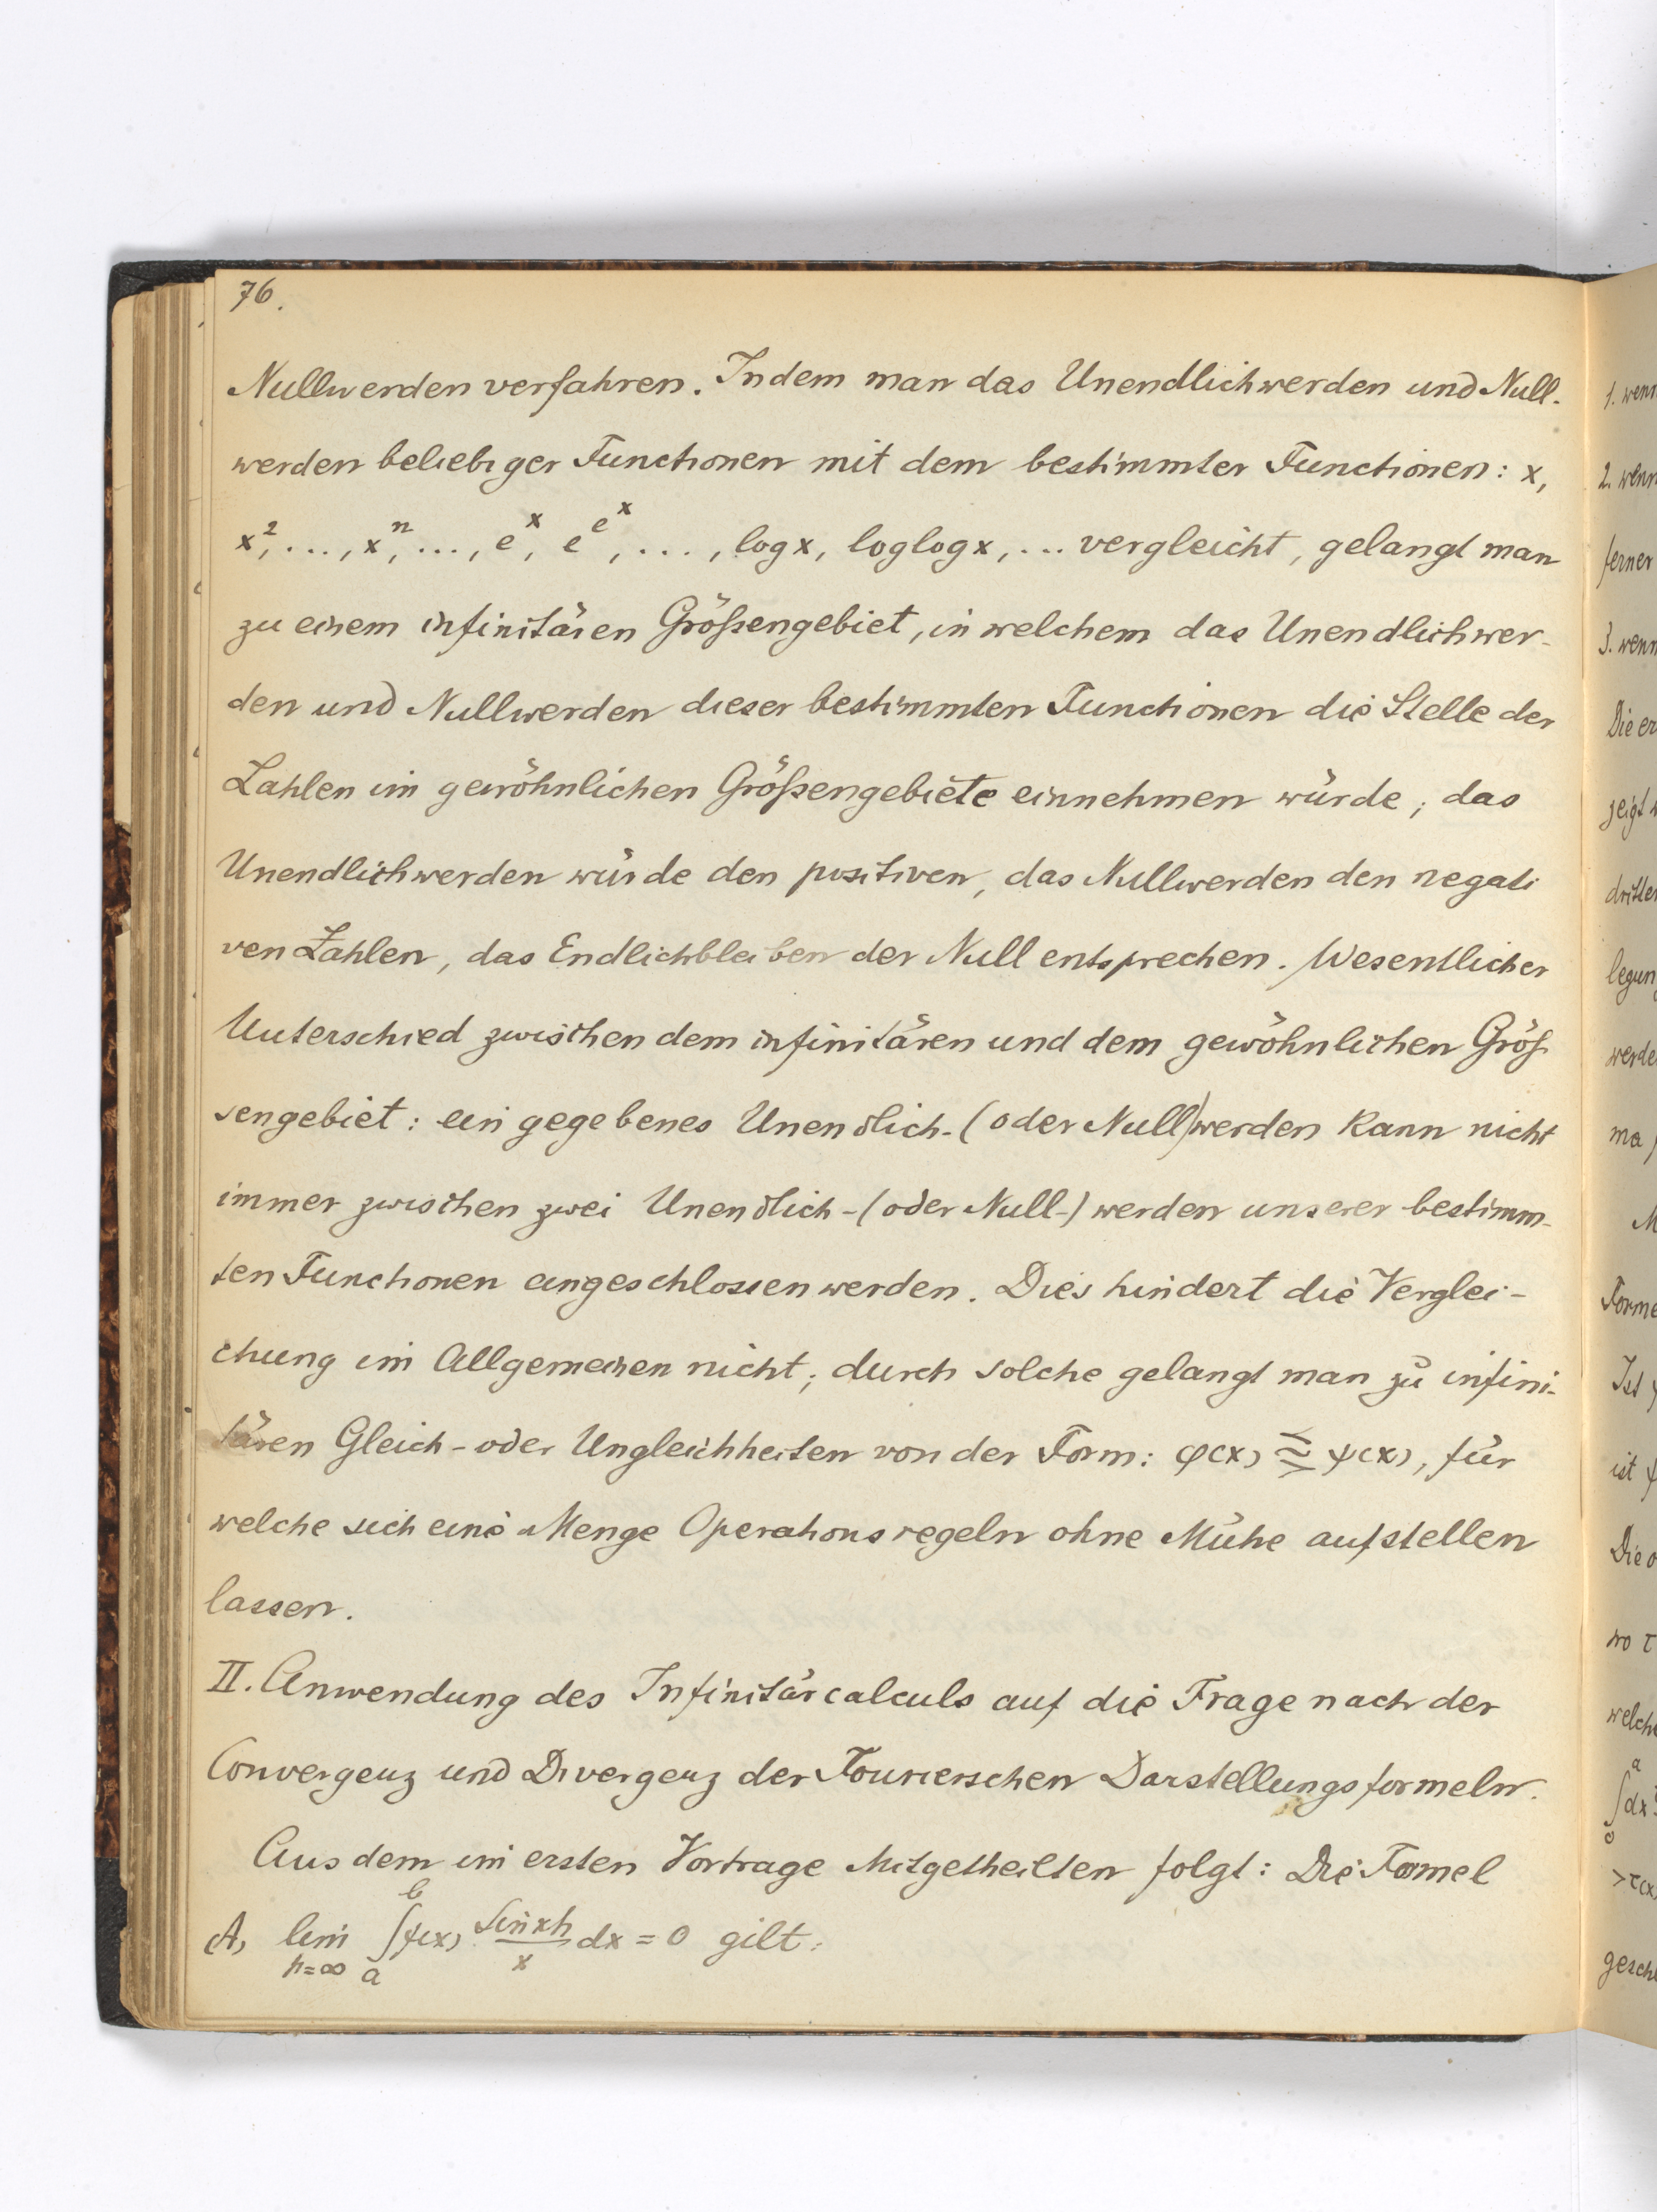 76.
Nullwerden verfahren. Indem man das Unendlichwerden und Null-
werden beliebiger Functionen mit dem bestimmter Functionen: x,
x², ..., xⁿ, ..., e^x, e^e^x, ..., log x, loglog x, ... vergleicht, gelangt man
zu einem infinitären Größengebiet, in welchem das Unendlichwer-
den und Nullwerden dieser bestimmten Functionen die Stelle der
Zahlen im gewöhnlichen Größengebiete einnehmen würde; das
Unendlichwerden würde den positiven, das Nullwerden den negati
ven Zahlen, das Endlichbleiben der Null entsprechen. Wesentlicher
Unterschied zwischen dem infinitären und dem gewöhnlichen Größ-
sengebiet: ein gegebenes Unendlich-(oder Null)werden kann nicht
immer zwischen zwei Unendlich-(oder Null-)werden unserer bestimm-
ten Functionen eingeschlossen werden. Dies hindert die Verglei-
chung im Allgemeinen nicht; durch solche gelangt man zu infini-
tären Gleich- oder Ungleichheiten von der Form: φ(x) ⪝̲ ψ(x), für
welche sich eine Menge Operationsregeln ohne Mühe aufstellen
lassen.
II. Anwendung des Infinitärcalculs auf die Frage nach der
Convergenz und Divergenz der Fourierschen Darstellungsformeln.
Aus dem im ersten Vortrage Mitgetheilten folgt: Die Formel
A) lim h=∞ ∫_a^b f(x) sin xh / x dx = 0 gilt:
1. wenn
2. wenn
ferner
3. wenn
Die er
zeigt
dritten
legun
werde
ma
M
Forme
Ist
ist
Die
wo τ
welch
∫ a o dx
>τ(x
gesch